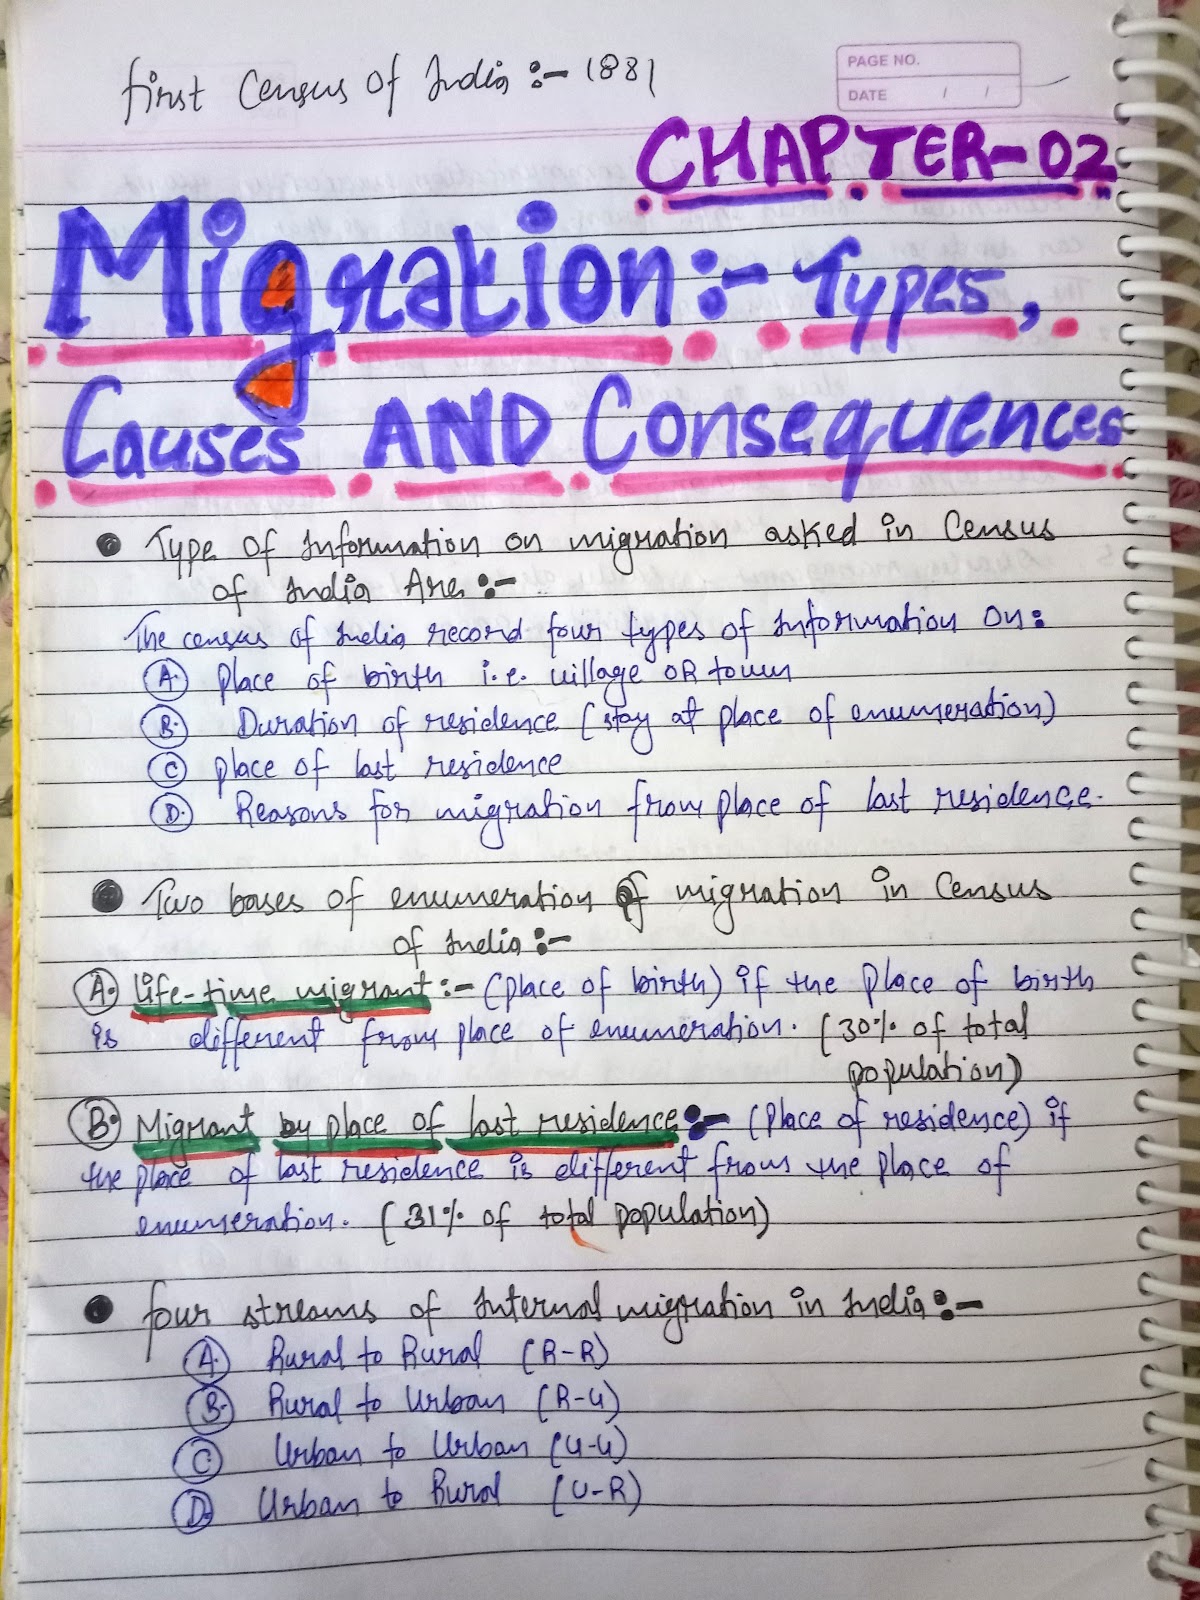 first Census Of India :- 1881
PAGE NO.
DATE / /
CHAPTER-02
Migration:- Types,
Causes AND Consequences
● Type Of Information on migration asked in Census
of India Are :-
The census of India record four types of Information On:
A. place of birth i.e. village OR town
B. Duration of residence (stay at place of enumeration)
C place of last residence
D. Reasons for migration from place of last residence.
● Two bases of enumeration of migration in Census
of India :-
A. life-time migrant :- (place of birth) if the place of birth
is different from place of enumeration. (30% of total
population)
B. Migrant by place of last residence :- (place of residence) if
the place of last residence is different from the place of
enumeration. (31% of total population)
● four streams of Internal migration in India :-
A. Rural to Rural (R-R)
B. Rural to Urban (R-U)
C Urban to Urban (U-U)
D. Urban to Rural (U-R)